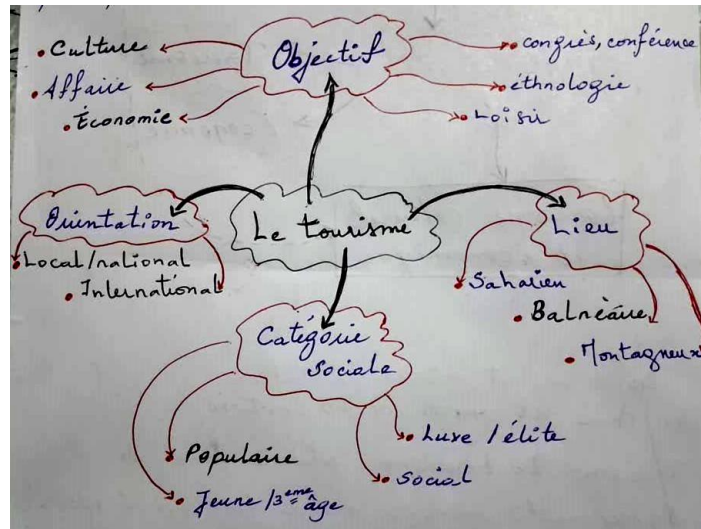 Objectif
Culture
Affaire
Économie
congrès, conférence
éthnologie
Loisir
Le tourisme
Orientation
Local/national
International
Lieu
Saharien
Balnèaire
Montagneux
Catégorie
sociale
Populaire
Jeune /3ème âge
Luxe /élite
Social